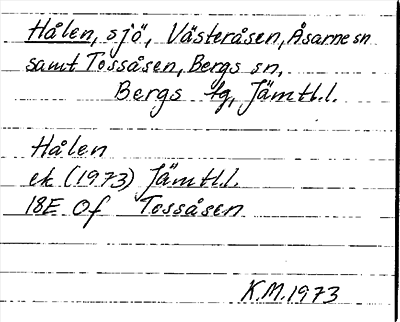 Hålen, sjö, Västeråsen, Åsarne sn
samt Tossåsen, Bergs sn,
Bergs tg, Jämtl.l.
Hålen
ek (1973) Jämtl.l.
18E Of Tossåsen
K.M. 1973